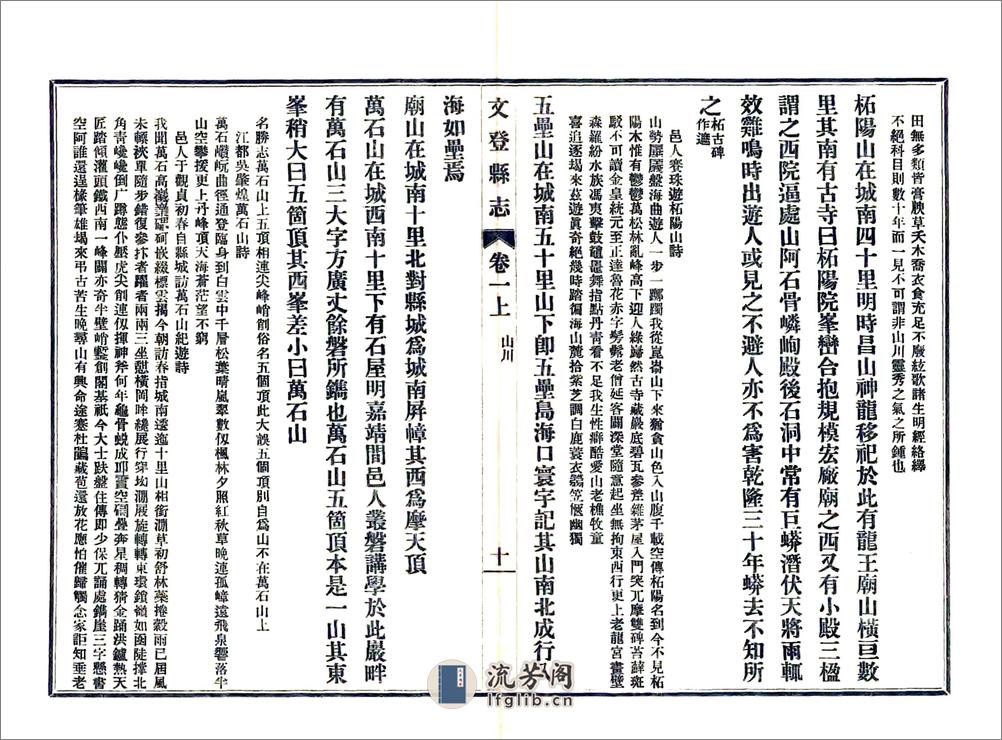 田無多類皆膏腴草夭木喬衣食充足不廢絃歌諸生明經絡繹
不絕科目則數十年而一見不可謂非山川靈秀之氣之所鍾也
柘陽山在城南四十里明時昌山神龍移祀於此有龍王廟山橫亘數
里其南有古寺曰柘陽院峯巒合抱規模宏廠廟之西又有小殿三楹
謂之西院逼處山阿石骨嶙峋殿後石洞中常有巨蟒潛伏天將雨輒
效雞鳴時出遊人或見之不避人亦不為害乾隆三十年蟒去不知所
之柘古碑作遮
邑人賽珠遊柘陽山詩
山勢屭贔盤海曲遊人一步一躑躅我從崑崙山下來猶貪山色入山腹千載空傳柘陽名到今不見柘
陽木惟有鬱鬱萬松林亂峰高下迎人綠巋然古寺藏巖底碧瓦參差雜茅屋入門突兀摩雙碑苔蘚斑
駁不可讀金皇統元至正達魯花赤字髣髴老僧延客闢深堂隨意起坐無拘束西行更上老龍宮畫壁
森羅紛水族馮夷擊鼓鼉舞指點丹青看不足我生性癖酷愛山老樵牧童
喜追逐朅來茲遊眞奇絕幾時踏徧海山麓拾紫芝調白鹿蓑衣笠愜幽獨
五壘山在城南五十里山下卽五壘島海口寰宇記其山南北成行入
海如壘焉
廟山在城南十里北對縣城為城南屏幛其西為摩天頂
萬石山在城西南十里下有石屋明嘉靖間邑人叢磐講學於此巖畔
有萬石山三大字方廣丈餘磐所鐫也萬石山五箇頂本是一山其東
峯稍大曰五箇頂其西峯差小曰萬石山
名勝志萬石山上五頂相連尖峰峭創俗名五個頂此大誤五個頂別自為山不在萬石山上
江都吳肇煌萬石山詩
萬石巑岏曲徑通登臨身到白雲中千層松葉晴嵐翠數仭楓林夕照紅秋草晚連孤嶂遠飛泉響落半
山空攀援更上丹峰頂天海蒼茫望不窮
邑人于觀貞初春自縣城訪萬石山紀遊詩
我聞萬石高嵌綴標雲搨今朝訪春指城南逶迤十里山相銜澗草初舒林藥捲穀雨已屆風
未輭裌單隨步錯復參拤者躍者兩兩三坐憇橫岡眸纔展行穿坳澗屐旋轉轉東環鎖嶺如函陡撑北
角青巉巉倒广蹲懸仆壓虎尖創連仭揮神斧何年龜骨蛻成耶置空疊奔星稠轉猜金踊洪鑪熱天
匠踏傾灌頭鐵西南一峰闢亦奇半壁峭豎創閣基祇今大士趺盤住傳卽少保兀誦處鐫崖三字懸書
空阿誰還逞椽筆雄朅來弔古苦生晚尋山有興命途蹇杜鵑藏苞還放花應怕催歸觸念家詎知垂老
文登縣志
卷一上
山川
十
流芳阁
lfglib.cn